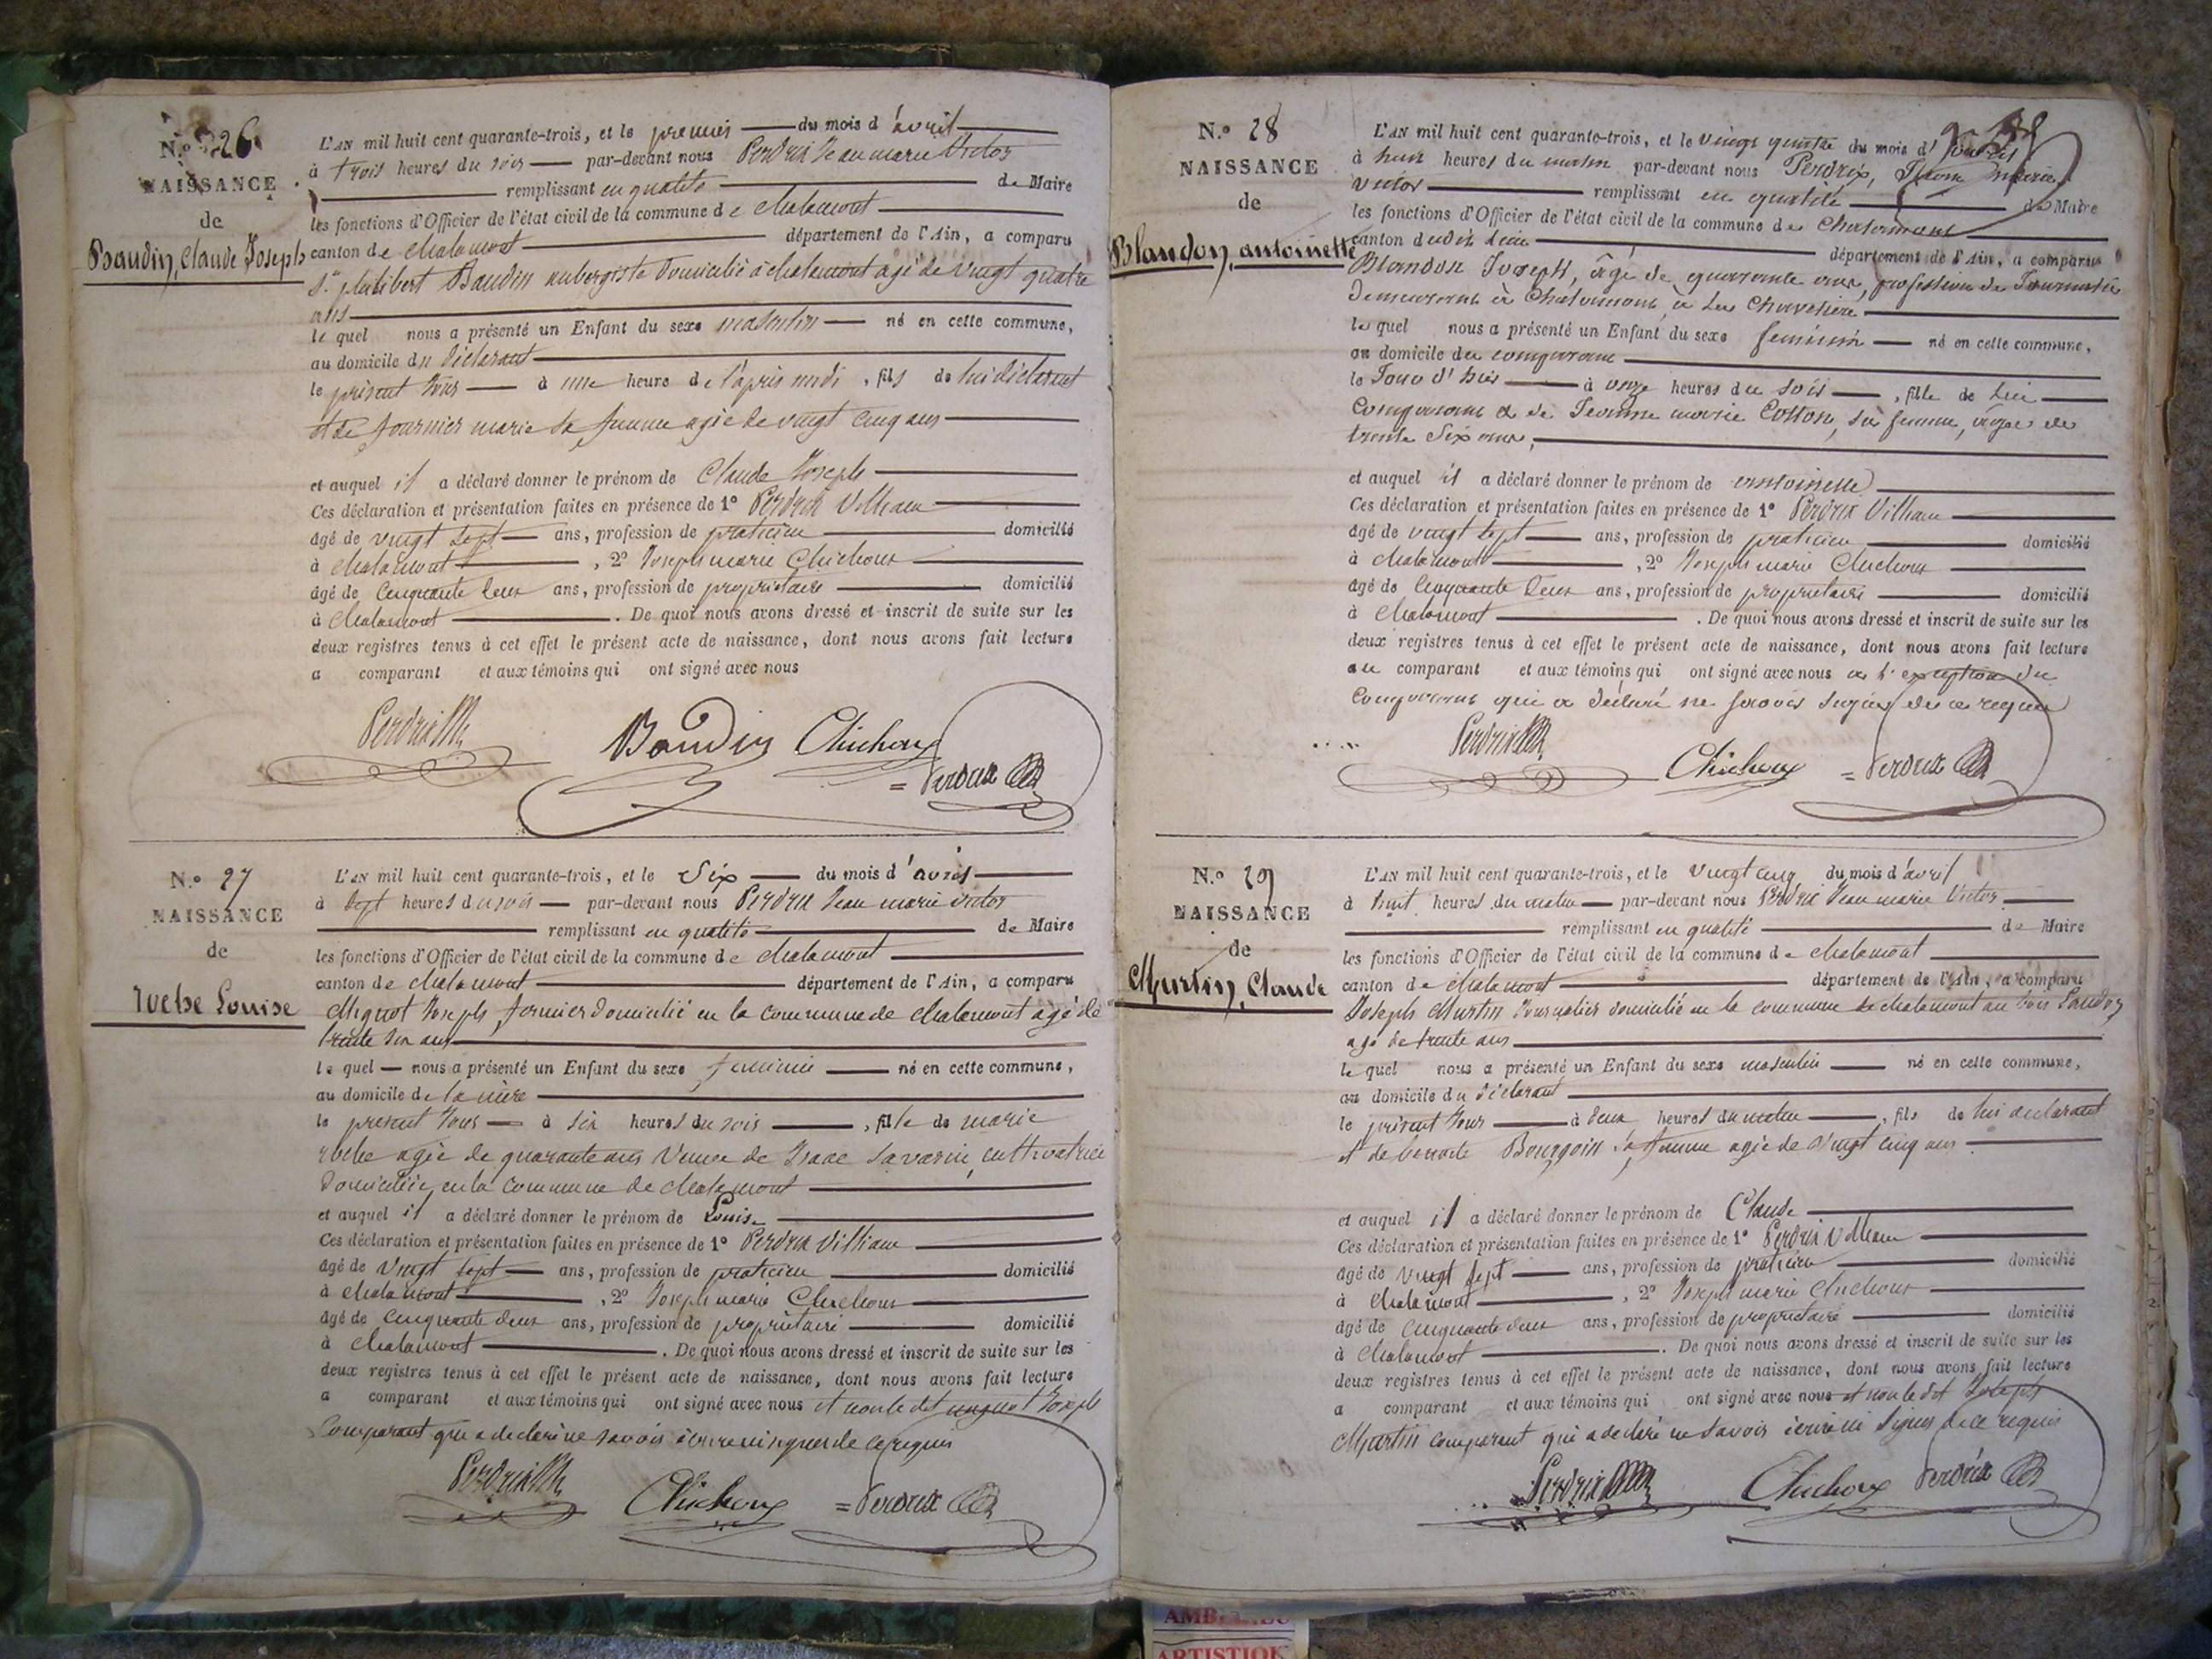 N.º 26
NAISSANCE
de
Baudin, Claude Joseph
L'AN mil huit cent quarante-trois, et le premier du mois d'avril
à trois heures du soir par-devant nous Perdrix Jean marie Victor
remplissant en qualité de Maire
les fonctions d'Officier de l'état civil de la commune de chalamont
canton de chalamont département de l'Ain, a comparu
Sr. philibert Baudin aubergiste domicilié à chalamont agé de vingt quatre
ans
le quel nous a présenté un Enfant du sexe masculin né en cette commune,
au domicile du déclarant
le présent jour à une heure de l'après midi, fils de lui déclarant
et de fournier marie sa femme agée de vingt cinq ans
et auquel il a déclaré donner le prénom de Claude Joseph
Ces déclaration et présentation faites en présence de 1º Perdrix William
âgé de vingt sept ans, profession de praticien domicilié
à chalamont, 2º Joseph marie Chichoux
âgé de cinquante deux ans, profession de propriétaire domicilié
à chalamont. De quoi nous avons dressé et inscrit de suite sur les
deux registres tenus à cet effet le présent acte de naissance, dont nous avons fait lecture
a comparant et aux témoins qui ont signé avec nous
Perdrix
Baudin Chichoux
= Perdrix
N.º 27
NAISSANCE
de
Rebe Louise
L'AN mil huit cent quarante-trois, et le Six du mois d'avril
à sept heures du soir par-devant nous Perdrix Jean marie victor
remplissant en qualité de Maire
les fonctions d'Officier de l'état civil de la commune de chalamont
canton de chalamont département de l'Ain, a comparu
Mignot Joseph, fermier domicilié en la commune de chalamont agé de
trente six ans
le quel nous a présenté un Enfant du sexe féminin né en cette commune,
au domicile de la mère
le présent jour à six heures du soir, fille de marie
agée de quarante ans Veuve de Isaac Savarin, cultivatrice
domiciliée en la commune de chalamont
et auquel il a déclaré donner le prénom de Louise
Ces déclaration et présentation faites en présence de 1º Perdrix William
âgé de vingt sept ans, profession de praticien domicilié
à chalamont, 2º Joseph marie Chichoux
âgé de cinquante deux ans, profession de propriétaire domicilié
à chalamont. De quoi nous avons dressé et inscrit de suite sur les
deux registres tenus à cet effet le présent acte de naissance, dont nous avons fait lecture
a comparant et aux témoins qui ont signé avec nous et non le dit mignot Joseph
Comparant qui a déclaré ne savoir écrire ni signer de ce requis
Perdrix
Chichoux = Perdrix
N.º 28
NAISSANCE
de
Blandon, antoinette
L'AN mil huit cent quarante-trois, et le vingt quatre du mois d'
à huit heures du matin par-devant nous Perdrix, Jean marie
victor remplissant en qualité de Maire
les fonctions d'Officier de l'état civil de la commune de Chalamont
canton dudit lieu département de l'Ain, a comparu
Blandon Joseph, âgé de quarante ans, profession de Journalier
demeurant à Chalamont, à la
le quel nous a présenté un Enfant du sexe feminin né en cette commune,
au domicile du comparant
le Jour d'hier à onze heures du soir, fille de lui
Comparant et de Jeanne marie Cotton, sa femme, âgée de
trente six ans,
et auquel il a déclaré donner le prénom de antoinette
Ces déclaration et présentation faites en présence de 1º Perdrix William
âgé de vingt sept ans, profession de praticien domicilié
à chalamont, 2º Joseph marie Chichoux
âgé de cinquante deux ans, profession de propriétaire domicilié
à chalamont. De quoi nous avons dressé et inscrit de suite sur les
deux registres tenus à cet effet le présent acte de naissance, dont nous avons fait lecture
au comparant et aux témoins qui ont signé avec nous à l'exception du
Comparant qui a déclaré ne savoir signer de ce requis
Perdrix
Chichoux = Perdrix
N.º 29
NAISSANCE
de
Martin, Claude
L'AN mil huit cent quarante-trois, et le vingt cinq du mois d'avril
à huit heures du matin par-devant nous Perdrix Jean marie Victor
remplissant en qualité de Maire
les fonctions d'Officier de l'état civil de la commune de chalamont
canton de chalamont département de l'Ain, a comparu
Joseph Martin Journalier domicilié en la commune de chalamont au
agé de trente ans
le quel nous a présenté un Enfant du sexe masculin né en cette commune,
au domicile du déclarant
le présent jour à deux heures du matin, fils de lui déclarant
et de benoite Bourgoin sa femme agée de vingt cinq ans
et auquel il a déclaré donner le prénom de Claude
Ces déclaration et présentation faites en présence de 1º Perdrix William
âgé de vingt sept ans, profession de praticien domicilié
à chalamont, 2º Joseph marie Chichoux
âgé de cinquante deux ans, profession de propriétaire domicilié
à chalamont. De quoi nous avons dressé et inscrit de suite sur les
deux registres tenus à cet effet le présent acte de naissance, dont nous avons fait lecture
a comparant et aux témoins qui ont signé avec nous et non le dit Joseph
Martin comparant qui a déclaré ne savoir écrire ni signer de ce requis
Perdrix
Chichoux Perdrix